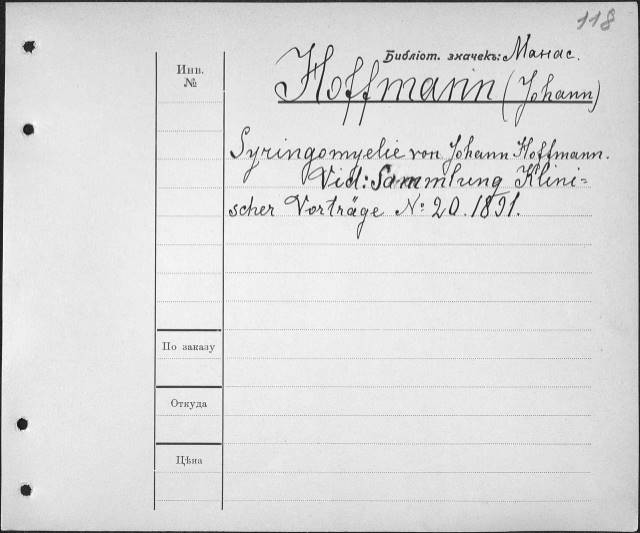 118
Библіот. значекъ: Манас.
Инв. №
Hoffmann (Johann)
Syringomyelie von Johann Hoffmann.
Vid: Sammlung Klini=
scher Vorträge No: 20. 1891.
По заказу
Откуда
Цѣна